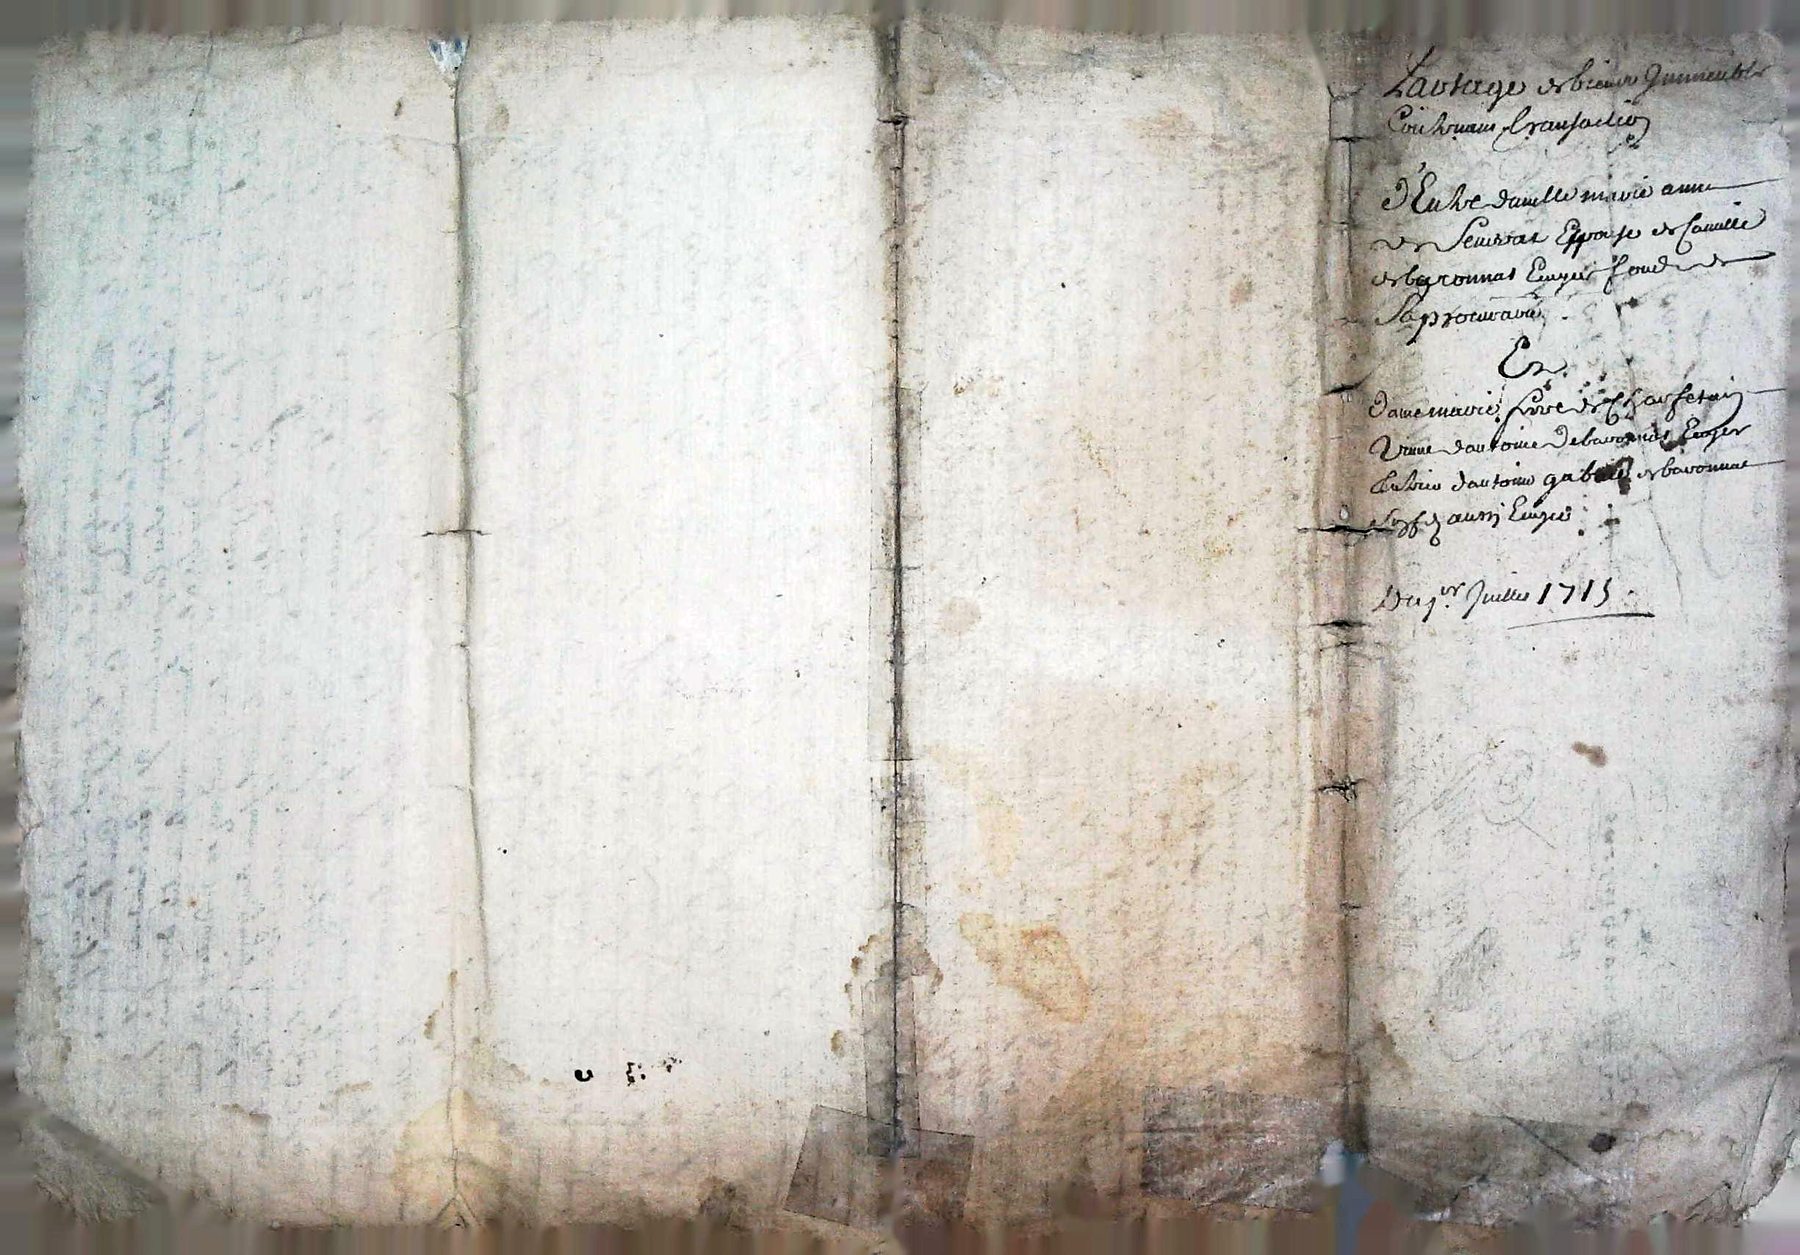 Partage de biens Jmmeubles
Contenant transaction
d'Entre damelle marie anne
de Senozat Epouse de Camille
de baronnat Ecuyer fondé de
Sa procuration
Et
dame marie, de Charfetain
veuve d'antoine de baronnat Ecuyer
tutrice d'antoine gabriel de baronnat
aussi Ecuyer
Du jer Juillet 1715